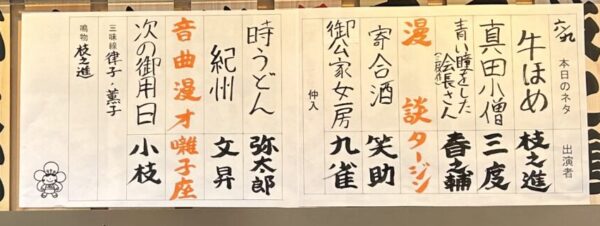 本日のネタ 出演者
牛ほめ 枝之進
真田小僧 三度
青い瞳をした会長さん(新作) 春之輔
漫談 タージン
寄合酒 笑助
御公家女房 九雀
仲入
時うどん 弥太郎
紀州 文昇
音曲漫才 囃子座
次の御用日 小枝
三味線 律子・薫子
鳴物 枝之進